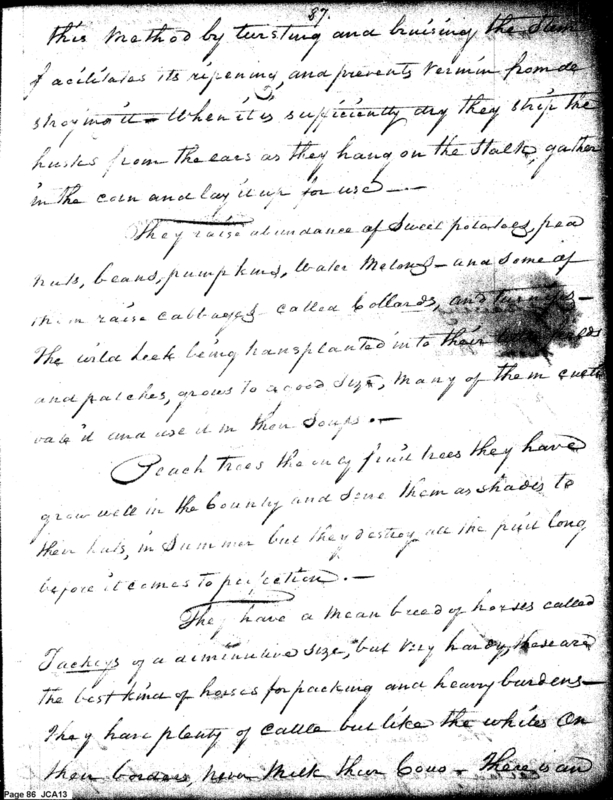 87.
this method by twisting and bruising the Stem
facilitates its ripening, and prevents vermin from de
stroying it – When it is sufficiently dry they strip the
husks from the ears as they hang on the Stalk, gather
in the corn and lay it up for use –
They raise abundance of Sweet potatoes, pea
nuts, beans, pumpkins, Water Melons – and Some of
them raise cabbages called Collards, and turnips –
The wild Leek being transplanted into their
and patches, grows to a good size, many of them culti
vate it and use it in their Soups. –
Peach trees the only fruit trees they have
grow well in the Country and Serve them as shades to
their huts, in Summer but they destroy all the fruit long
before it comes to perfection. –
They have a mean breed of horses called
Tackeys of a diminutive size, but very hardy, these are
the best kind of horses for packing and heavy burdens –
They have plenty of Cattle but like the whites On
their borders, never Milk their Cows – There is an
Page 86 JCA13